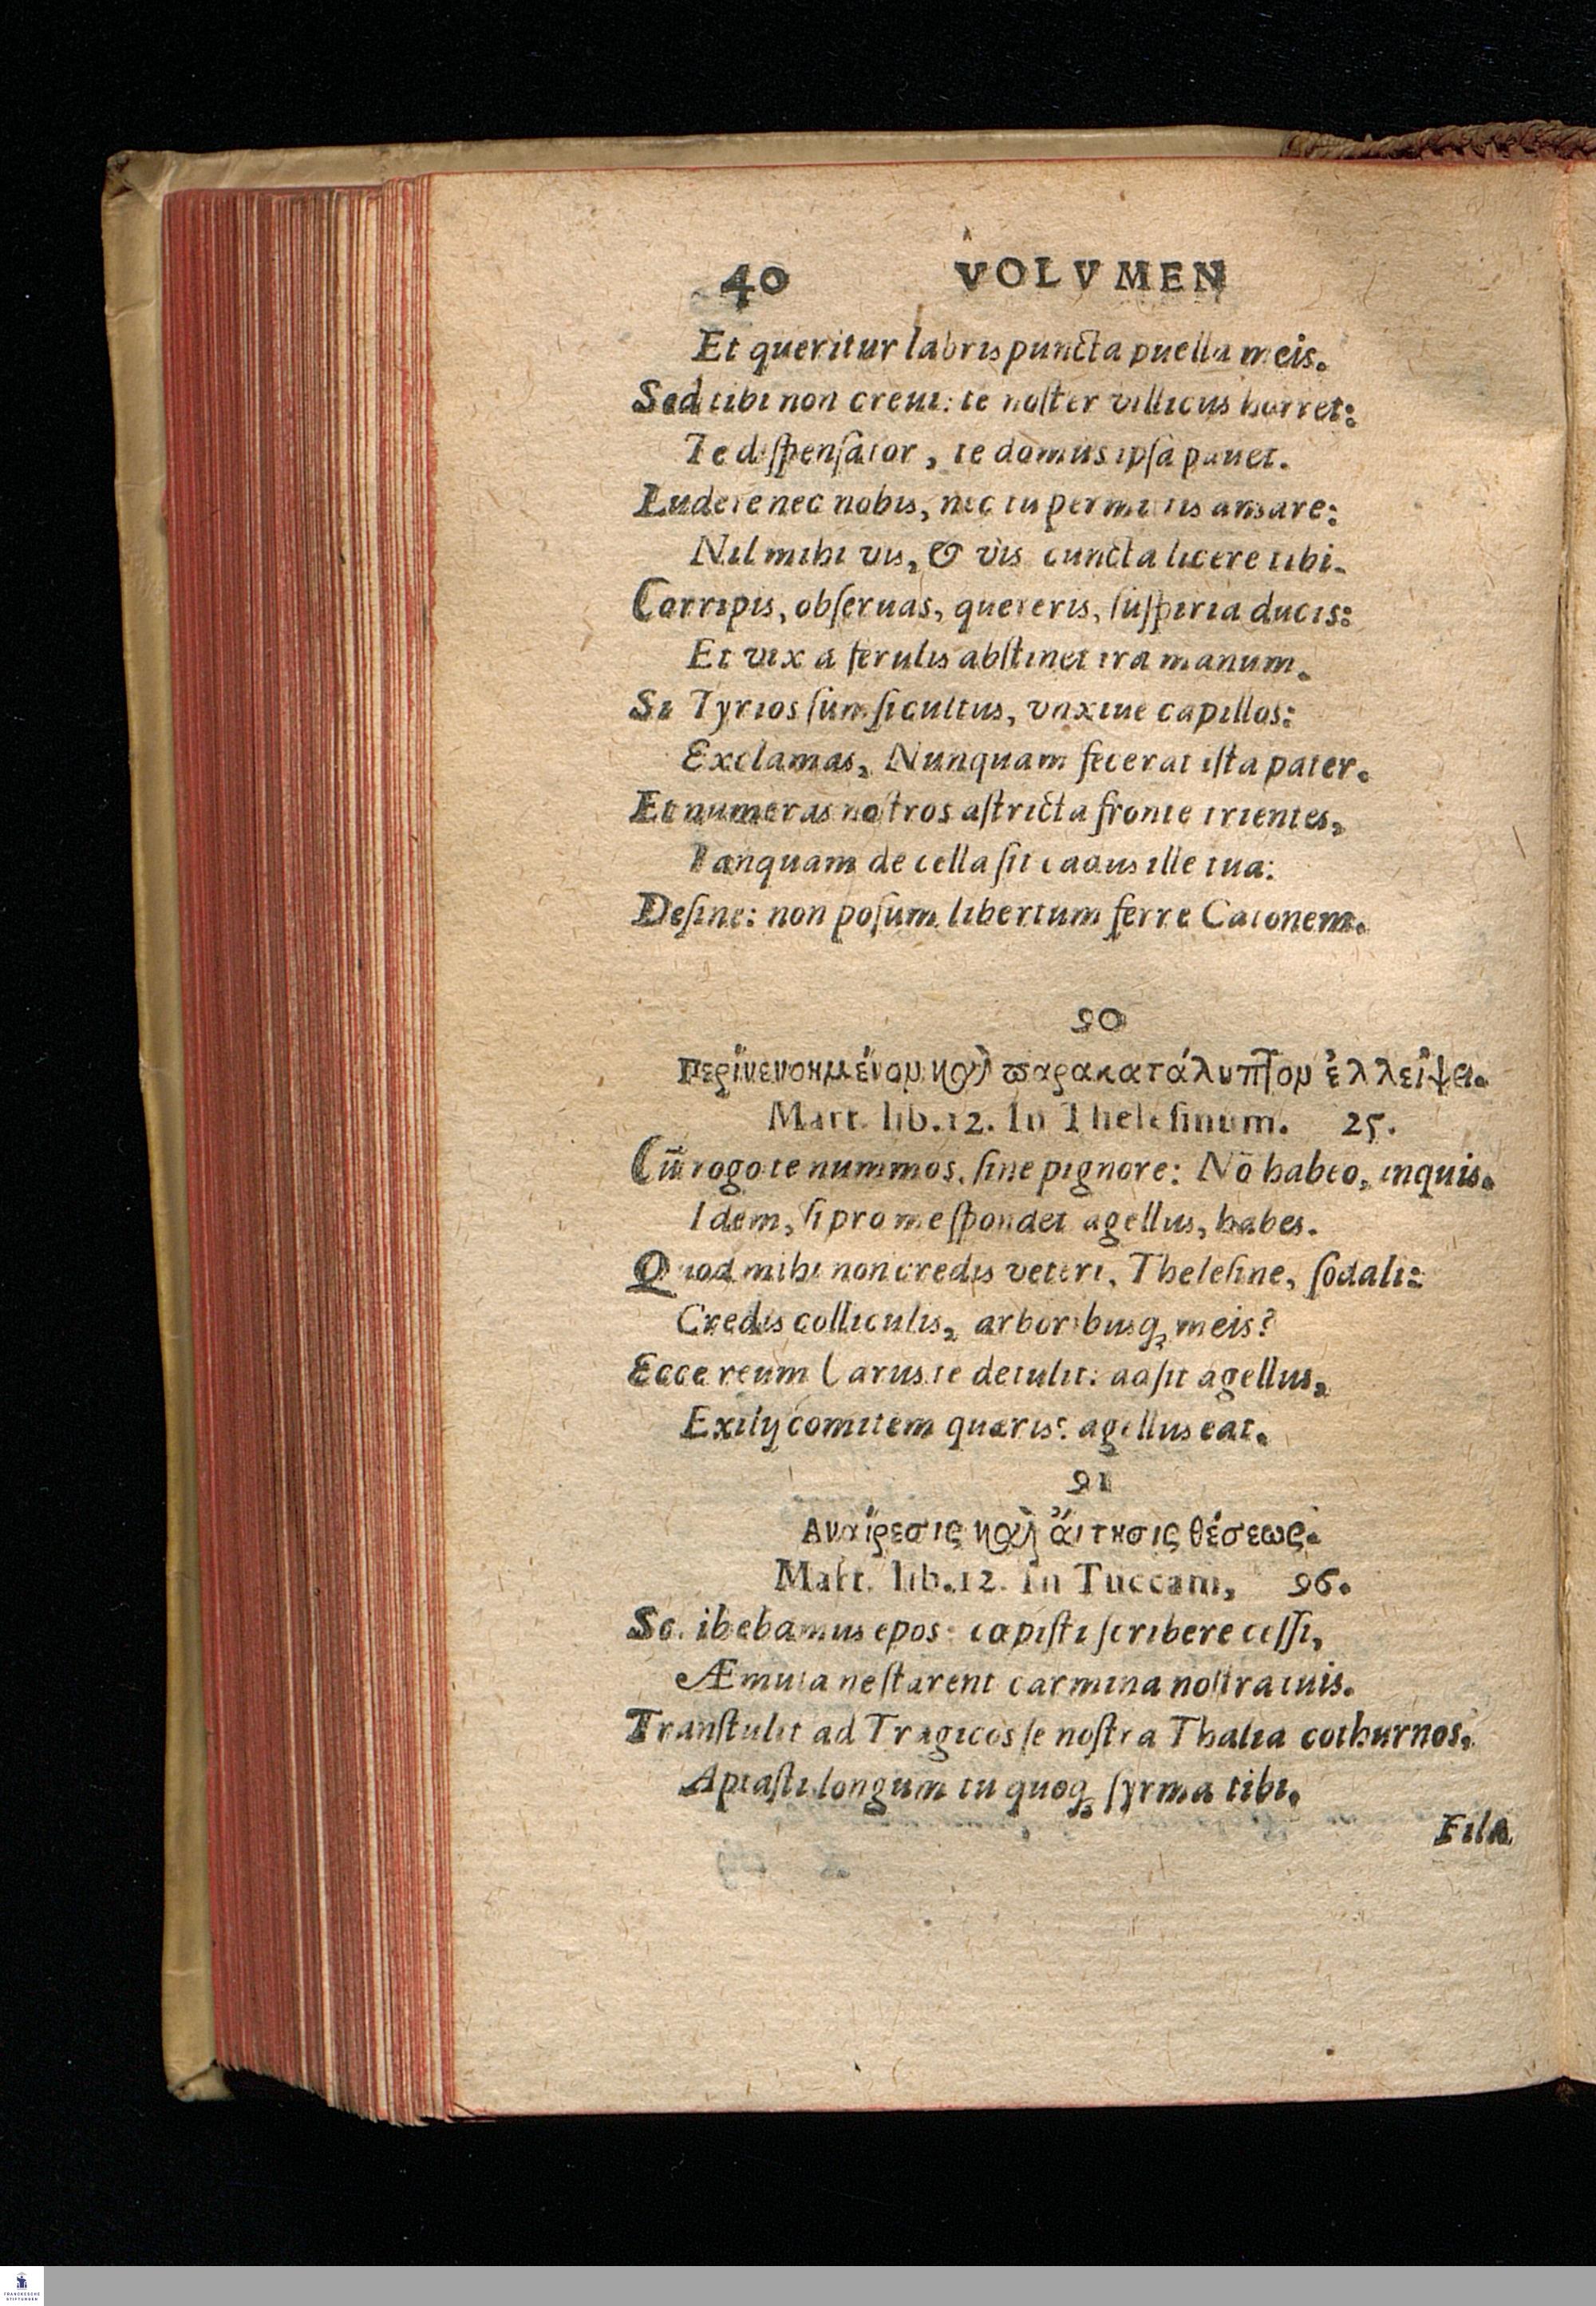 40 VOLVMEN
Et queritur labris puncta puella meis.
Sed tibi non creui: te noſter villicus horret:
Te diſpenſator, te domus ipſa pauet.
Ludere nec nobis, nec tu permittis amare:
Nil mihi vis, & vis cuncta licere tibi.
Corripis, obſeruas, quereris, ſuſpiria ducis:
Et vix a ferulis abſtinet ira manum.
Si Tyrios ſumſi cultus, vnxiue capillos:
Exclamas, Nunquam fecerat iſta pater.
Et numeras noſtros aſtricta fronte trientes,
Tanquam de cella ſit cadus ille tua:
Deſine: non poſum libertum ferre Catonem.
90
Περίνενοημένομ καὶ παρακατάλυπτομ ἐλλείψει.
Mart. lib. 12. In Theleſinum. 25.
Cũ rogo te nummos, ſine pignore: Nõ habeo, inquis.
Idem, ſi pro me ſpondet agellus, habes.
Quod mihi non credis veteri, Theleſine, ſodali:
Credis colliculis, arboribusq; meis?
Ecce reum Carus te detulit: adſit agellus,
Exilij comitem quæris? agellus eat.
91
Αναίρεσις καὶ ἄιτησις θέσεως.
Mart. lib. 12. In Tuccam, 96.
Scribebamus epos: cœpiſti ſcribere ceſſi,
Æmula ne ſtarent carmina noſtra tuis.
Tranſtulit ad Tragicos ſe noſtra Thalia cothurnos.
Aptaſti longum tu quoq; ſyrma tibi.
Fila
FRANCKESCHE
STIFTUNGEN